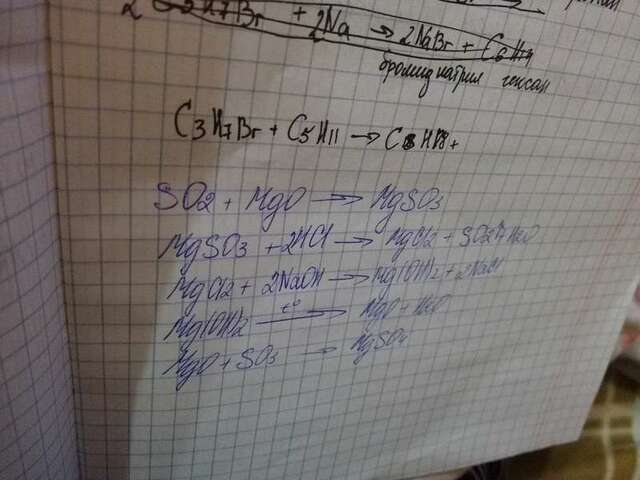 2 C3H7Br + 2Na → 2NaBr + C6H14
бромид натрия гексан
C3H7Br + C5H11 → C8H18+
SO2 + MgO → MgSO3
MgSO3 + 2HCl → MgCl2 + SO2↑+H2O
MgCl2 + 2NaOH → Mg(OH)2 + 2NaCl
Mg(OH)2 t° → MgO + H2O
MgO + SO3 → MgSO4